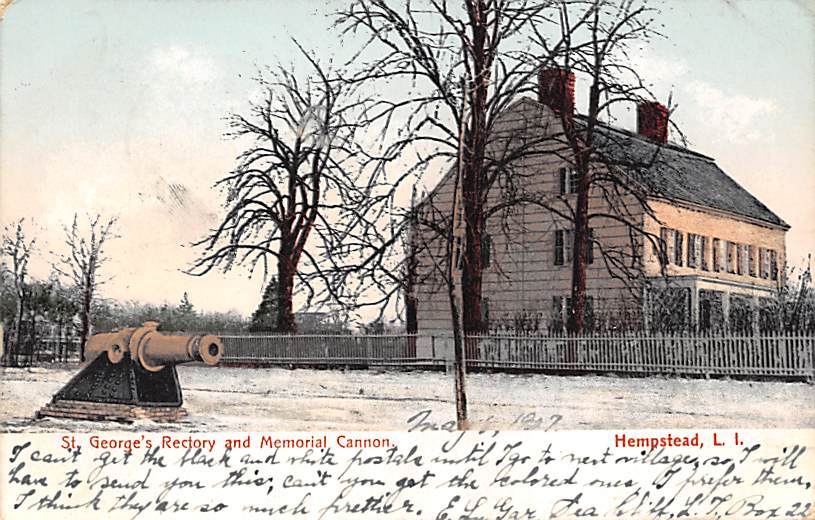 May 1, 1907
St. George's Rectory and Memorial Cannon. Hempstead, L. I.
I can't get the black and white postals until I go to next village, so I will
have to send you this; can't you get the colored ones, I prefer them,
I think they are so much prettier. E. L. Gar. Sea Cliff, L. I. Box 22